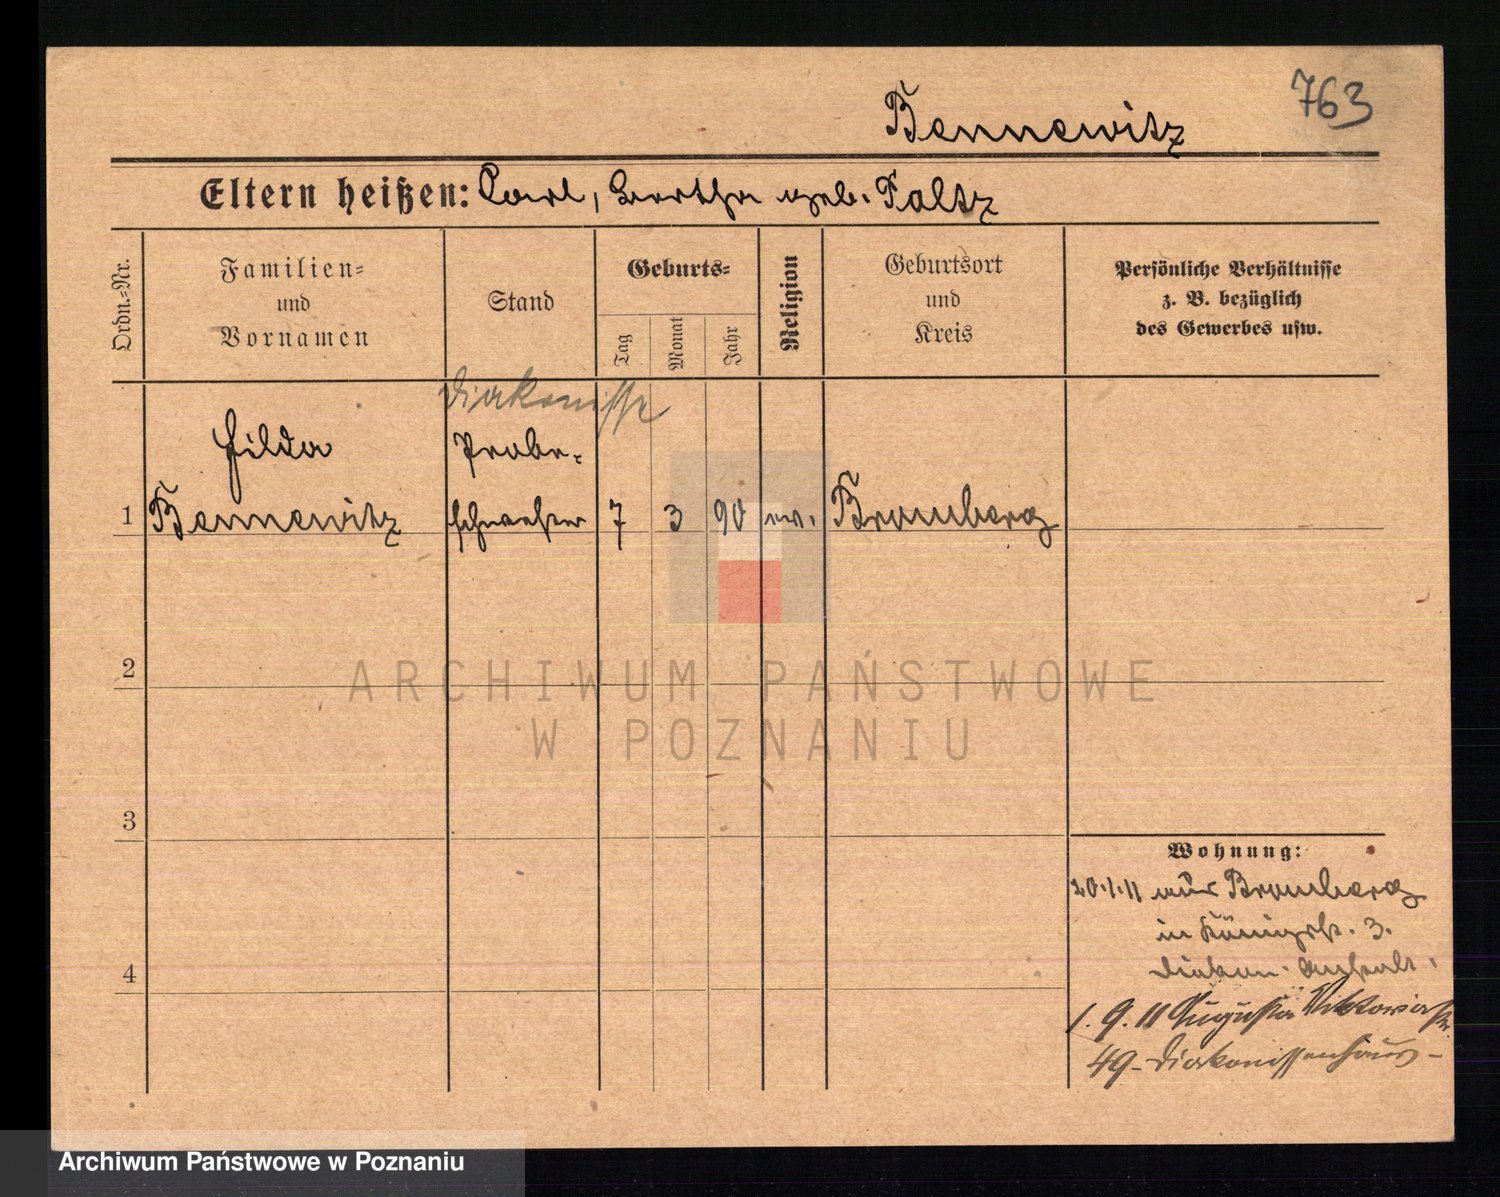 763
Bennewitz
Eltern heißen: Carl, Bertha geb. Paltz
Ordn.-Nr.
Familien-
und
Vornamen
Stand
Geburts-
Tag
Monat
Jahr
Religion
Geburtsort
und
Kreis
Persönliche Verhältnisse
z. B. bezüglich
des Gewerbes usw.
Diakonisse
Hilda
Probe-
1 Bennewitz schwester 7 3 90 ev. Bromberg
2
3
4
ARCHIWUM PAŃSTWOWE
W POZNANIU
Wohnung:
20.1.11 aus Bromberg
in Königstr. 3.
Diakon. Anstalt.
1.9.11 Augusta Viktoriastr
49 - Diakonissenhaus -
Archiwum Państwowe w Poznaniu